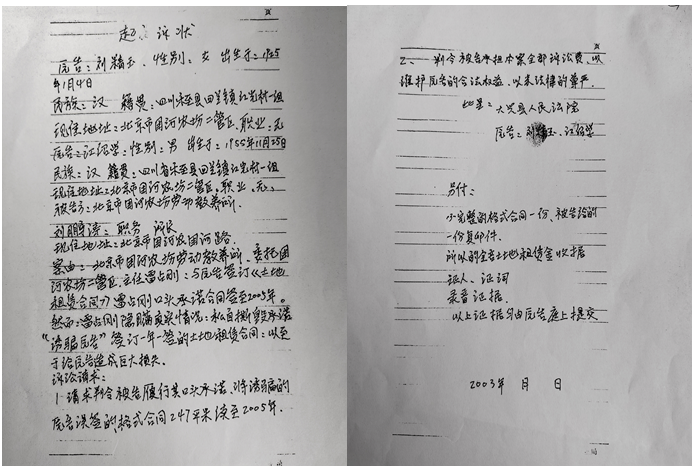 起诉状
原告：刘精玉、性别：女 出生于：1955
年1月4日
民族：汉 籍贯：四川 县四兰镇红光村一组
现住地址：北京市团河农场二管区、职业：无
原告：江绍学：性别：男 出生于：1955年11月25日
民族：汉 籍贯：四川省 县四兰镇红光村一组
现住地址：北京市团河农场二管区、职业、无、
被告方：北京市团河农场劳动教养所、
刘朋涛：职务
现住地址：北京市团河农团河路、
案由：北京市团河农场劳动教养所、委托团
河农场二管区、主任遇占刚：与原告签订《土地
租赁合同》遇占刚口头承诺合同签至2005年。
然而：遇占刚隐瞒真实情况：私自撕毁承诺
“诱骗原告”签订一年一签的土地租赁合同：以至
于给原告造成巨大损失、
诉讼请求：
1 请求判令被告履行其口头承诺、将诱骗的
原告误签的格式合同247平米续至2005年、
2、 判令被告承担本案全部诉讼费、以
维护原告的合法权益、以 法律的尊严、
此呈：大兴县人民法院
原告：刘精玉、江绍学
另付：
完整的格式合同一份、被告给的
一份复印件、
所以的全år土地租赁金收据
证人、证词
录音证据、
以上证据 由原告庭上提交
2003年 月 日